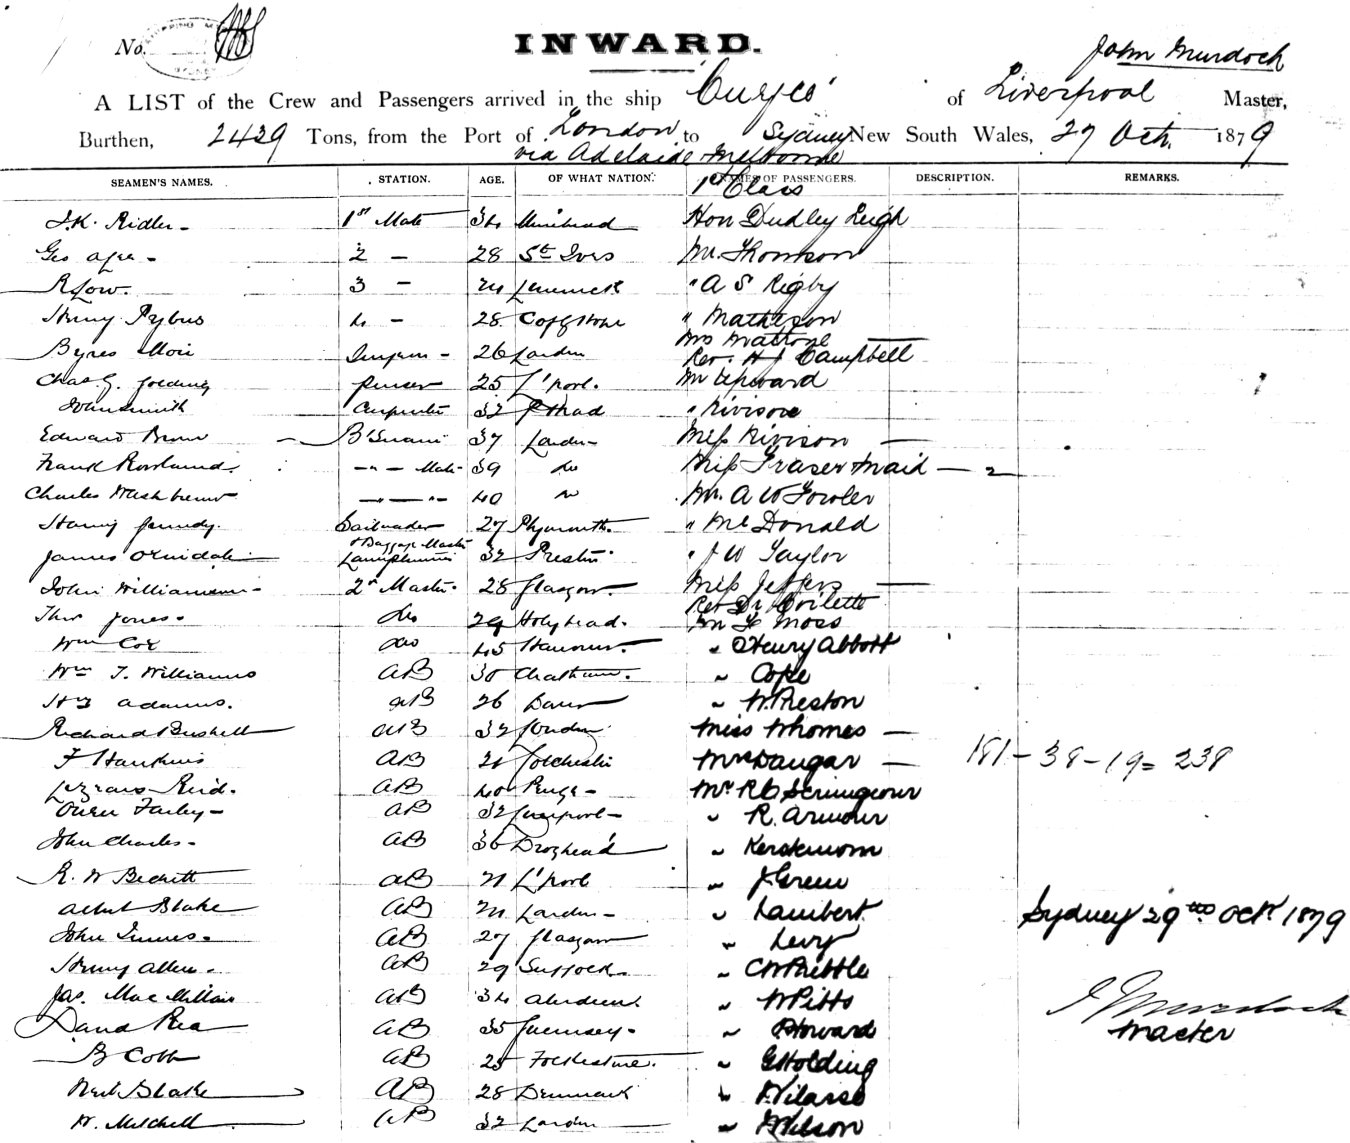 No.
INWARD.
John Murdoch
A LIST of the Crew and Passengers arrived in the ship 'Cuzco' of Liverpool Master,
Burthen, 2439 Tons, from the Port of London to Sydney New South Wales, 27 Oct. 1879
via Adelaide Melbourne
SEAMEN'S NAMES. STATION. AGE. OF WHAT NATION. NAMES OF PASSENGERS. DESCRIPTION. REMARKS.
1st Class
J.K. Ridler 1st Mate 34 Hon Dudley Leigh
Geo 2 - 28 St Ives Mr. Thomson
R Low. 3 - 24 " A S Rigby
Henry Pybus 4 - 28 " Matheson
Mrs
Byres Moir Surgeon - 26 London Rev. H J Campbell
Chas G. Golding purser 25 L'pool. Mr Upward
John Smith Carpenter 32 "
Edward Brown B'Swain 37 London Miss —
Frank Rowland. -"- Mate 39 do Miss Fraser Maid — 2
Charles Washbourne —"—"— 40 do Mr. A W Fowler
Harry Sailmaker 27 Plymouth " McDonald
& Baggage Master
James Lamptrimmer 32 Preston " J W Taylor
John Williamson 2nd Master 28 Glasgow Miss Jeffers —
Rev Dr
Thos Jones do 29 Holyhead. Mr Moss
Wm Cox do 45 Hanover. " Henry Abbott
Wm T. Williams AB 30 Chatham. " Cope
Hy Adams. AB 26 " W. Preston
Richard AB 32 London Miss Whomes —
F Hawkins AB 21 Colchester Mrs Dangar — 181 - 38 - 19 = 238
Reid. AB 40 Mr R C Scrimgeour
Owen Farley AB 32 Liverpool " R. Armour
John Charles AB 36 Drogheda "
R. W Beckett AB 21 L'pool " J Green
Albert Blake AB 24 London " Lambert Sydney 29th Oct 1879
John Innes AB 27 Glasgow " Levy
Henry Allen AB 29 Suffolk " C W Pibble
Jas. MacMillan AB 34 Aberdeen " W Pitts J Murdoch
David Rea AB 35 Guernsey " Howard Master
B Cobb AB 25 Folkestone. " G Holding
Blake AB 28 Denmark "
W. Mitchell AB 32 London " Wilson